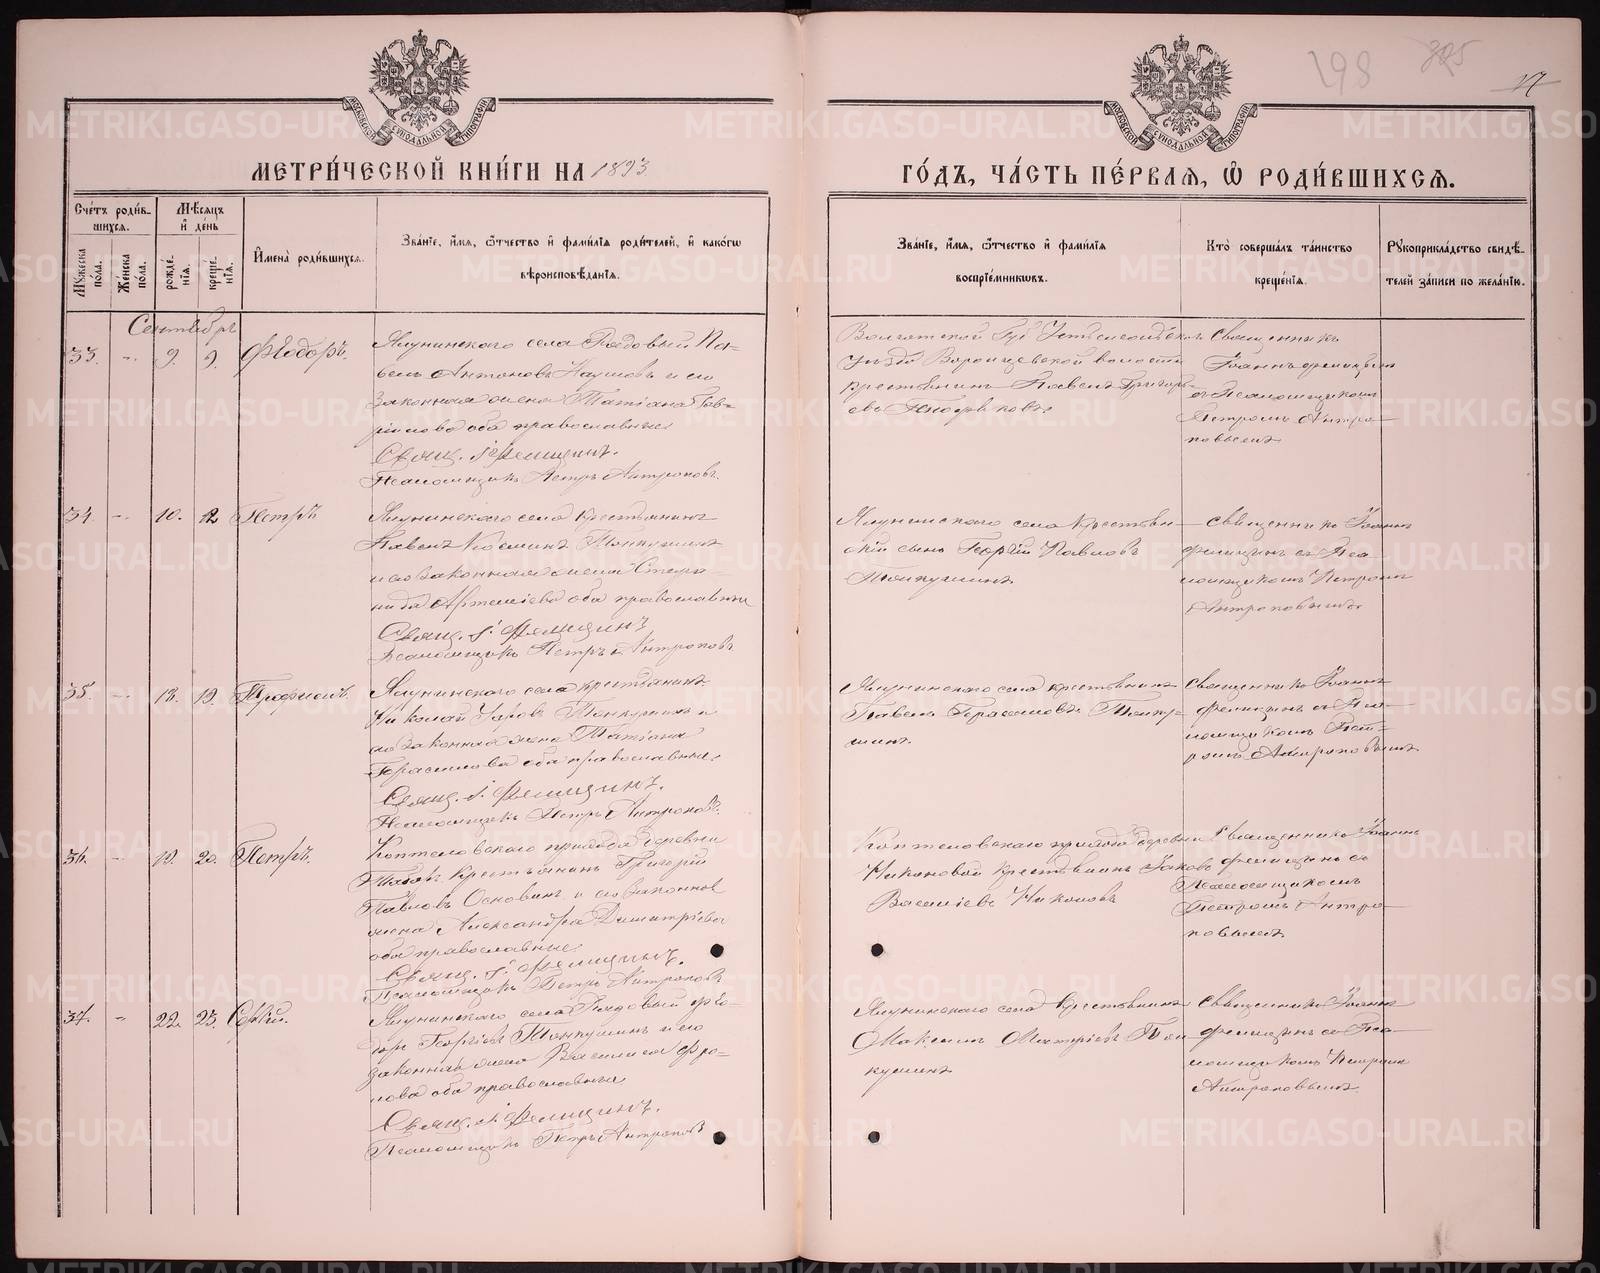 198 305
17
МОСКОВСКОЙ СѴНОДАЛЬНОЙ ТИПОГРАФІИ
МОСКОВСКОЙ СѴНОДАЛЬНОЙ ТИПОГРАФІИ
МЕТРИ́ЧЕСКОЙ КНИ́ГИ НА 1893
ГО́ДЪ, ЧА́СТЬ ПЕ́РВАЯ, Ѡ РОДИ́ВШИХСЯ.
Сче́тъ роди́в-
шихся.
Мѣ́сяцъ
и де́нь
Му́жеска по́ла.
Же́нска по́ла.
рожде́нія.
креще́нія.
Имена̀ роди́вшихся.
Зва́ніе, и́мя, ѻ́тчество и фами́лія роди́телей, и како́гѡ
вѣроисповѣ́данія.
Зва́ніе, и́мя, ѻ́тчество и фами́лія
воспріе́мникѡвъ.
Кто̀ соверша́лъ та́инство
креще́нія.
Рꙋкоприкла́дство свидѣ́-
телей за́писи по жела́нію.
Сентябрь
33. - 9. 9. Ѳеодоръ.
Ялунинскаго села Рядовый Па-
велъ Антоновъ Наумовъ и его
законная жена Татіана Гав-
рілова оба православные
Свящ. І. Фелицинъ.
Псаломщикъ Петръ Антроповъ.
Вологодской Губ Устьсысольск
уѣзда волости
крестьянинъ Павелъ Григорь-
евъ
Священникъ
Іоаннъ Фелицинъ
съ Псаломщикомъ
Петромъ Антро-
повымъ
34. - 10. 12 Петръ
Ялунинскаго села крестьянинъ
Павелъ Косминъ Томкушинъ
и его законная жена Стефа-
нида Артеміева оба православные
Свящ. І. Фелицинъ
Псаломщикъ Петръ Антроповъ
Ялунинскаго села Крестьян-
скій сынъ Георгій Павловъ
Священникъ Іоаннъ
Фелицинъ съ Пса-
ломщикомъ Петромъ
Антроповымъ
35. - 18. 19. Трофимъ.
Ялунинскаго села крестьянинъ
Николай и
его законная жена Татіана
Герасимова оба православные
Свящ. І. Фелицинъ.
Псаломщикъ Петръ Антроповъ.
Ялунинскаго села крестьянинъ
Павелъ Герасимовъ
Священникъ Іоаннъ
Фелицинъ съ Пса-
ломщикомъ Пет-
ромъ Антроповымъ
36. - 19. 20. Петръ.
Коптеловскаго прихода деревни
крестьянинъ Григорій
Павловъ Основинъ и его законная
жена Александра Димитріева
оба православные
Свящ. І. Фелицинъ.
Псаломщикъ Петръ Антроповъ
Коптеловскаго прихода деревни
Никоновой крестьянинъ Іаковъ
Василіевъ Никоновъ
Священникъ Іоаннъ
Фелицинъ съ
Псаломщикомъ
Петромъ Антро-
повымъ
37. - 22. 23. Сергій.
Ялунинскаго села Рядовый Ѳео-
доръ Георгіевъ Томкушинъ и его
законная жена Василиса Фро-
лова оба православные
Свящ. І. Фелицинъ.
Псаломщикъ Петръ Антроповъ
Ялунинскаго села крестьянинъ
Максимъ
Священникъ Іоаннъ
Фелицинъ съ Пса-
ломщикомъ Петромъ
Антроповымъ
METRIKI.GASO-URAL.RU